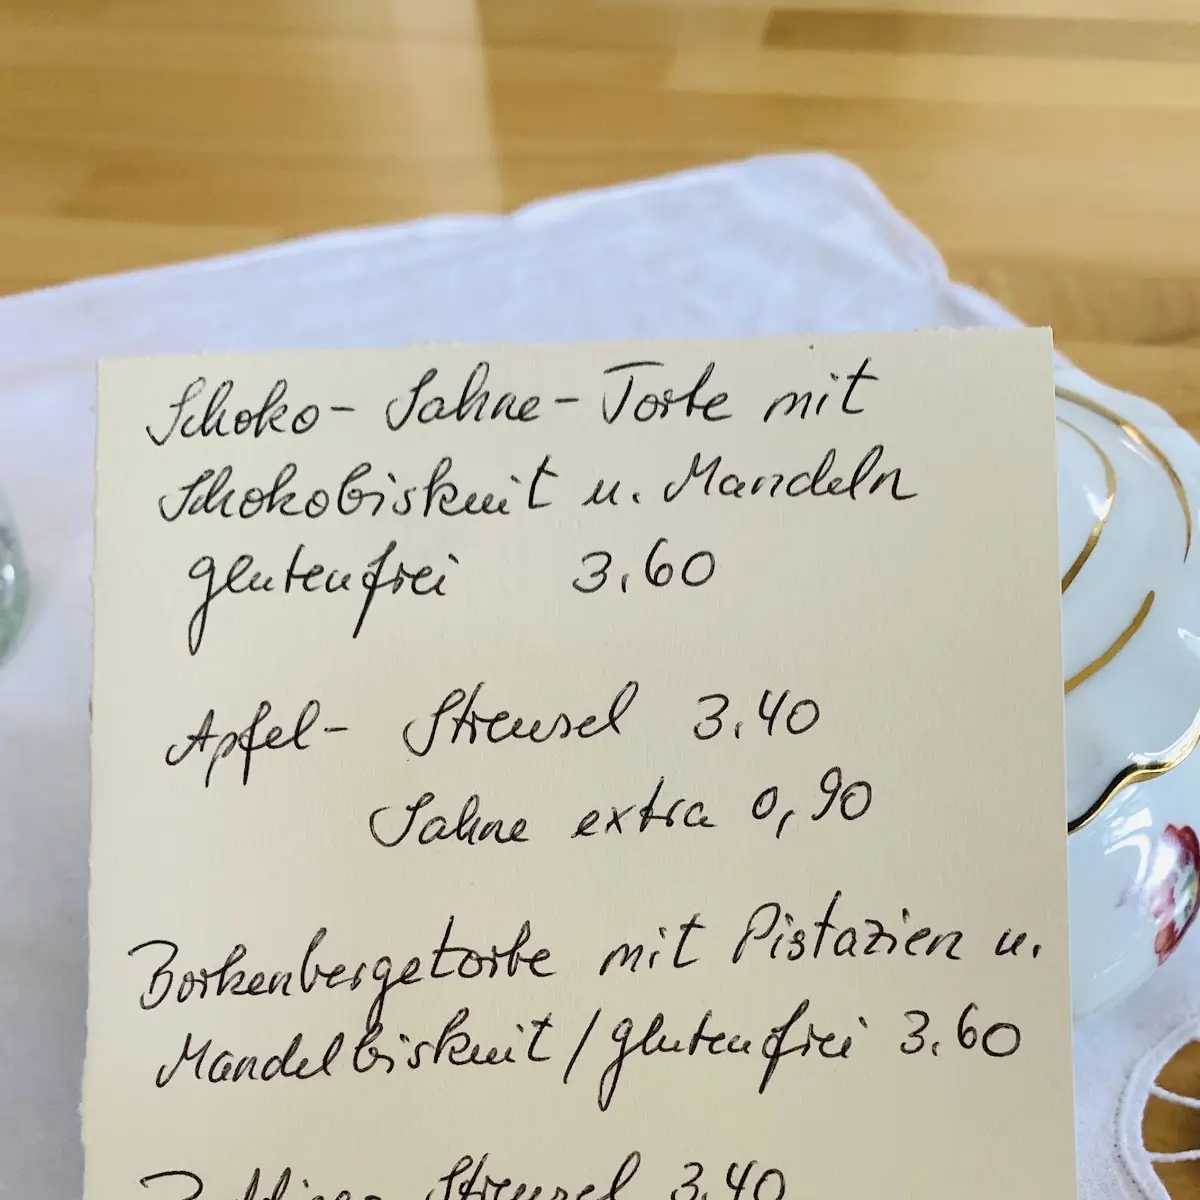 Schoko- Sahne- Torte mit
Schokobiskuit u. Mandeln
glutenfrei 3.60
Apfel- Streusel 3.40
Sahne extra 0,90
Borkenbergetorte mit Pistazien u.
Mandelbiskuit / glutenfrei 3.60
Pudding- Streusel 3.40